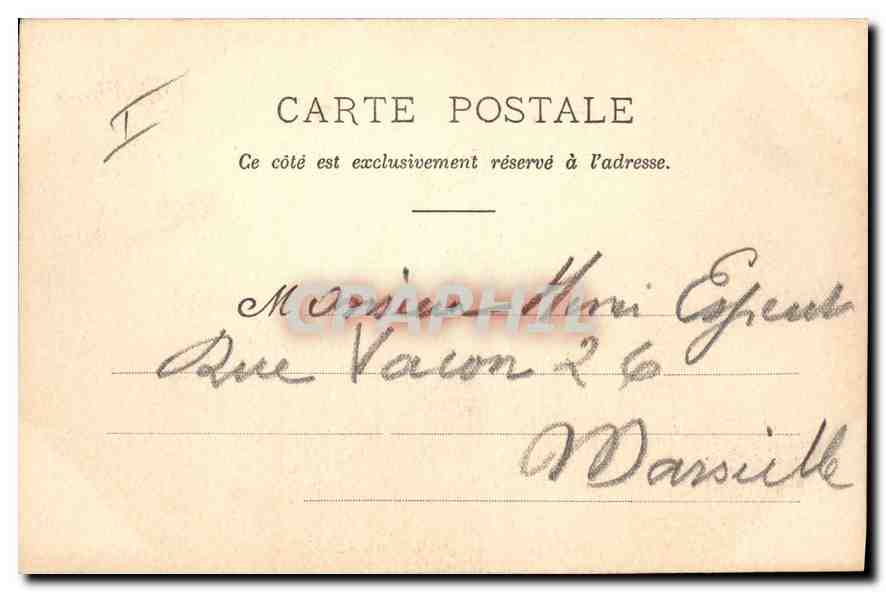 I
CARTE POSTALE
Ce côté est exclusivement réservé à l'adresse.
Monsieur Henri Espieut
Rue Vacon 26
Marseille
CPAPHIL